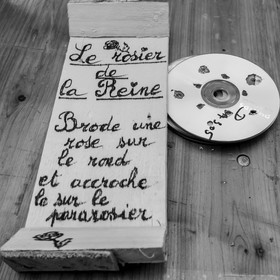 Le rosier
de
la Reine
Brode une
rose sur
le rond
et accroche
la sur le
pararosier